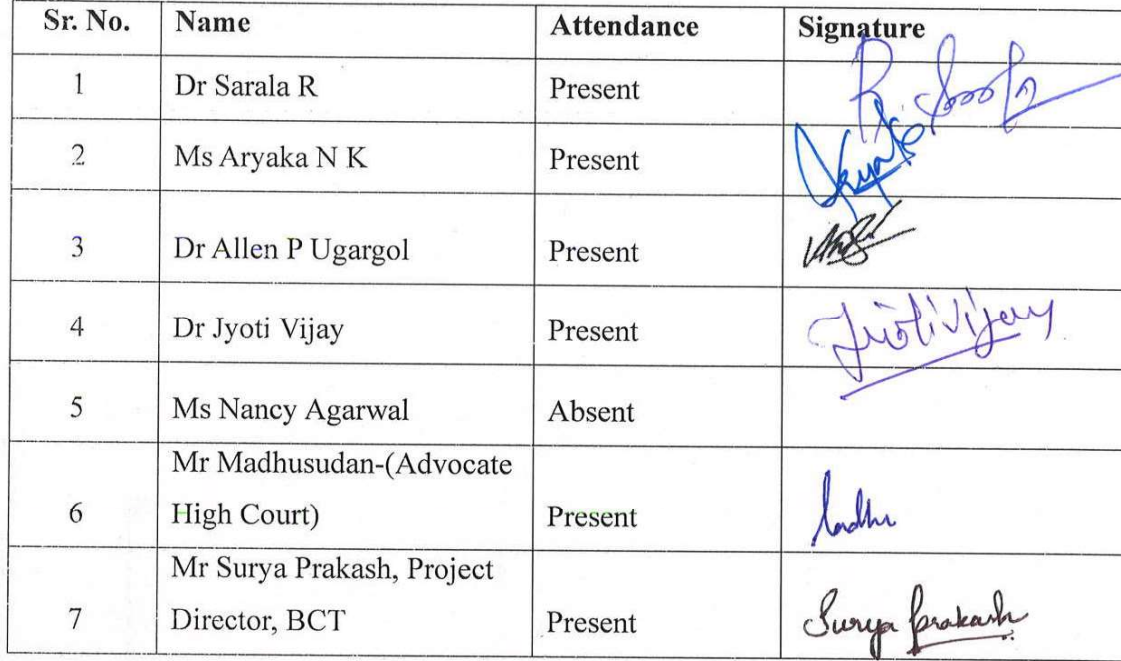 Sr. No. Name Attendance Signature
1 Dr Sarala R Present
2 Ms Aryaka N K Present
3 Dr Allen P Ugargol Present
4 Dr Jyoti Vijay Present Jyoti Vijay
5 Ms Nancy Agarwal Absent
Mr Madhusudan-(Advocate
6 High Court) Present
Mr Surya Prakash, Project
7 Director, BCT Present Surya Prakash